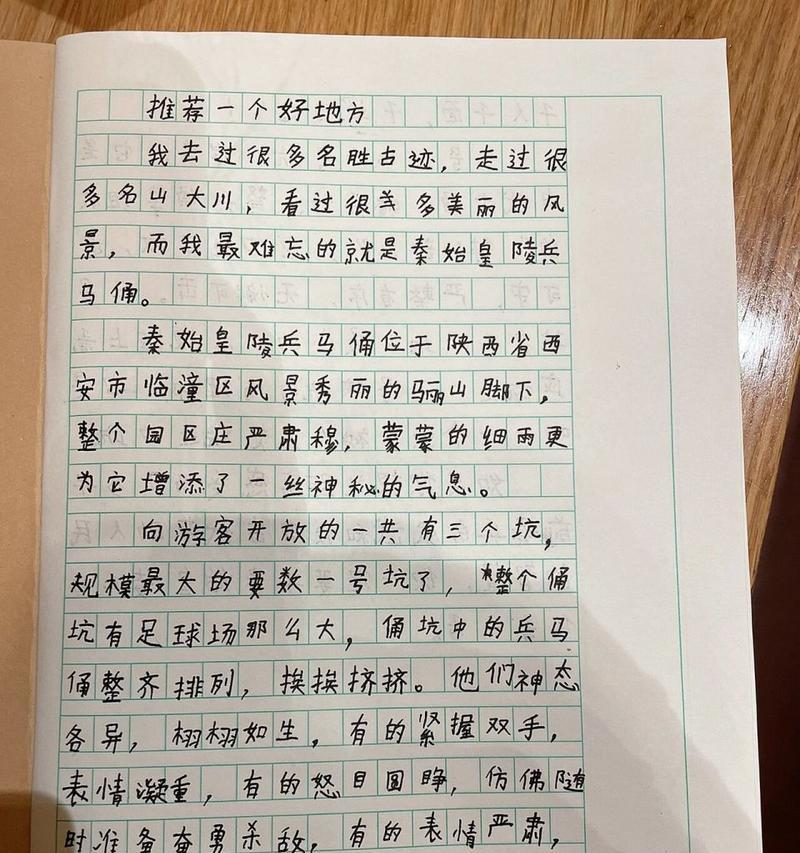 推荐一个好地方
我去过很多名胜古迹，走过很
多名山大川，看过很多美丽的风
景，而我最难忘的就是秦始皇陵兵
马俑。
秦始皇陵兵马俑位于陕西省西
安市临潼区风景秀丽的骊山脚下，
整个园区庄严肃穆，蒙蒙的细雨更
为它增添了一丝神秘的气息。
向游客开放的一共有三个坑，
规模最大的要数一号坑了，整个俑
坑有足球场那么大，俑坑中的兵马
俑整齐排列，挨挨挤挤。他们神态
各异，栩栩如生，有的紧握双手，
表情凝重，有的怒目圆睁，仿佛随
时准备奋勇杀敌，有的表情严肃，